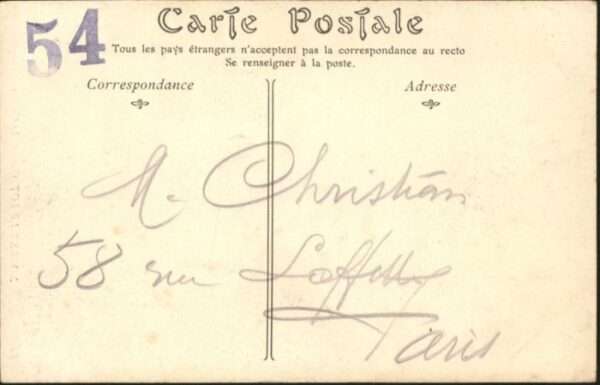 54
Carte Postale
Tous les pays étrangers n'acceptent pas la correspondance au recto
Se renseigner à la poste.
Correspondance
Adresse
M. Christian
58 rue Laffitte
Paris